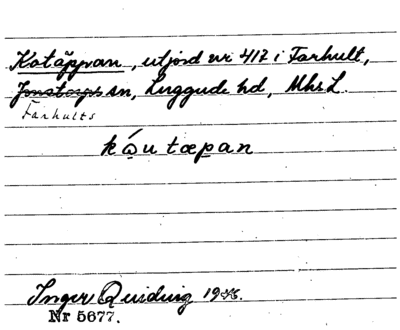 Kotäppan, utjord nr 417 i Farhult,
Jonstorps sn, Luggude hd, Mhs L.
Farhults
kωu tæpan
Inger Quiding
Nr 5677.